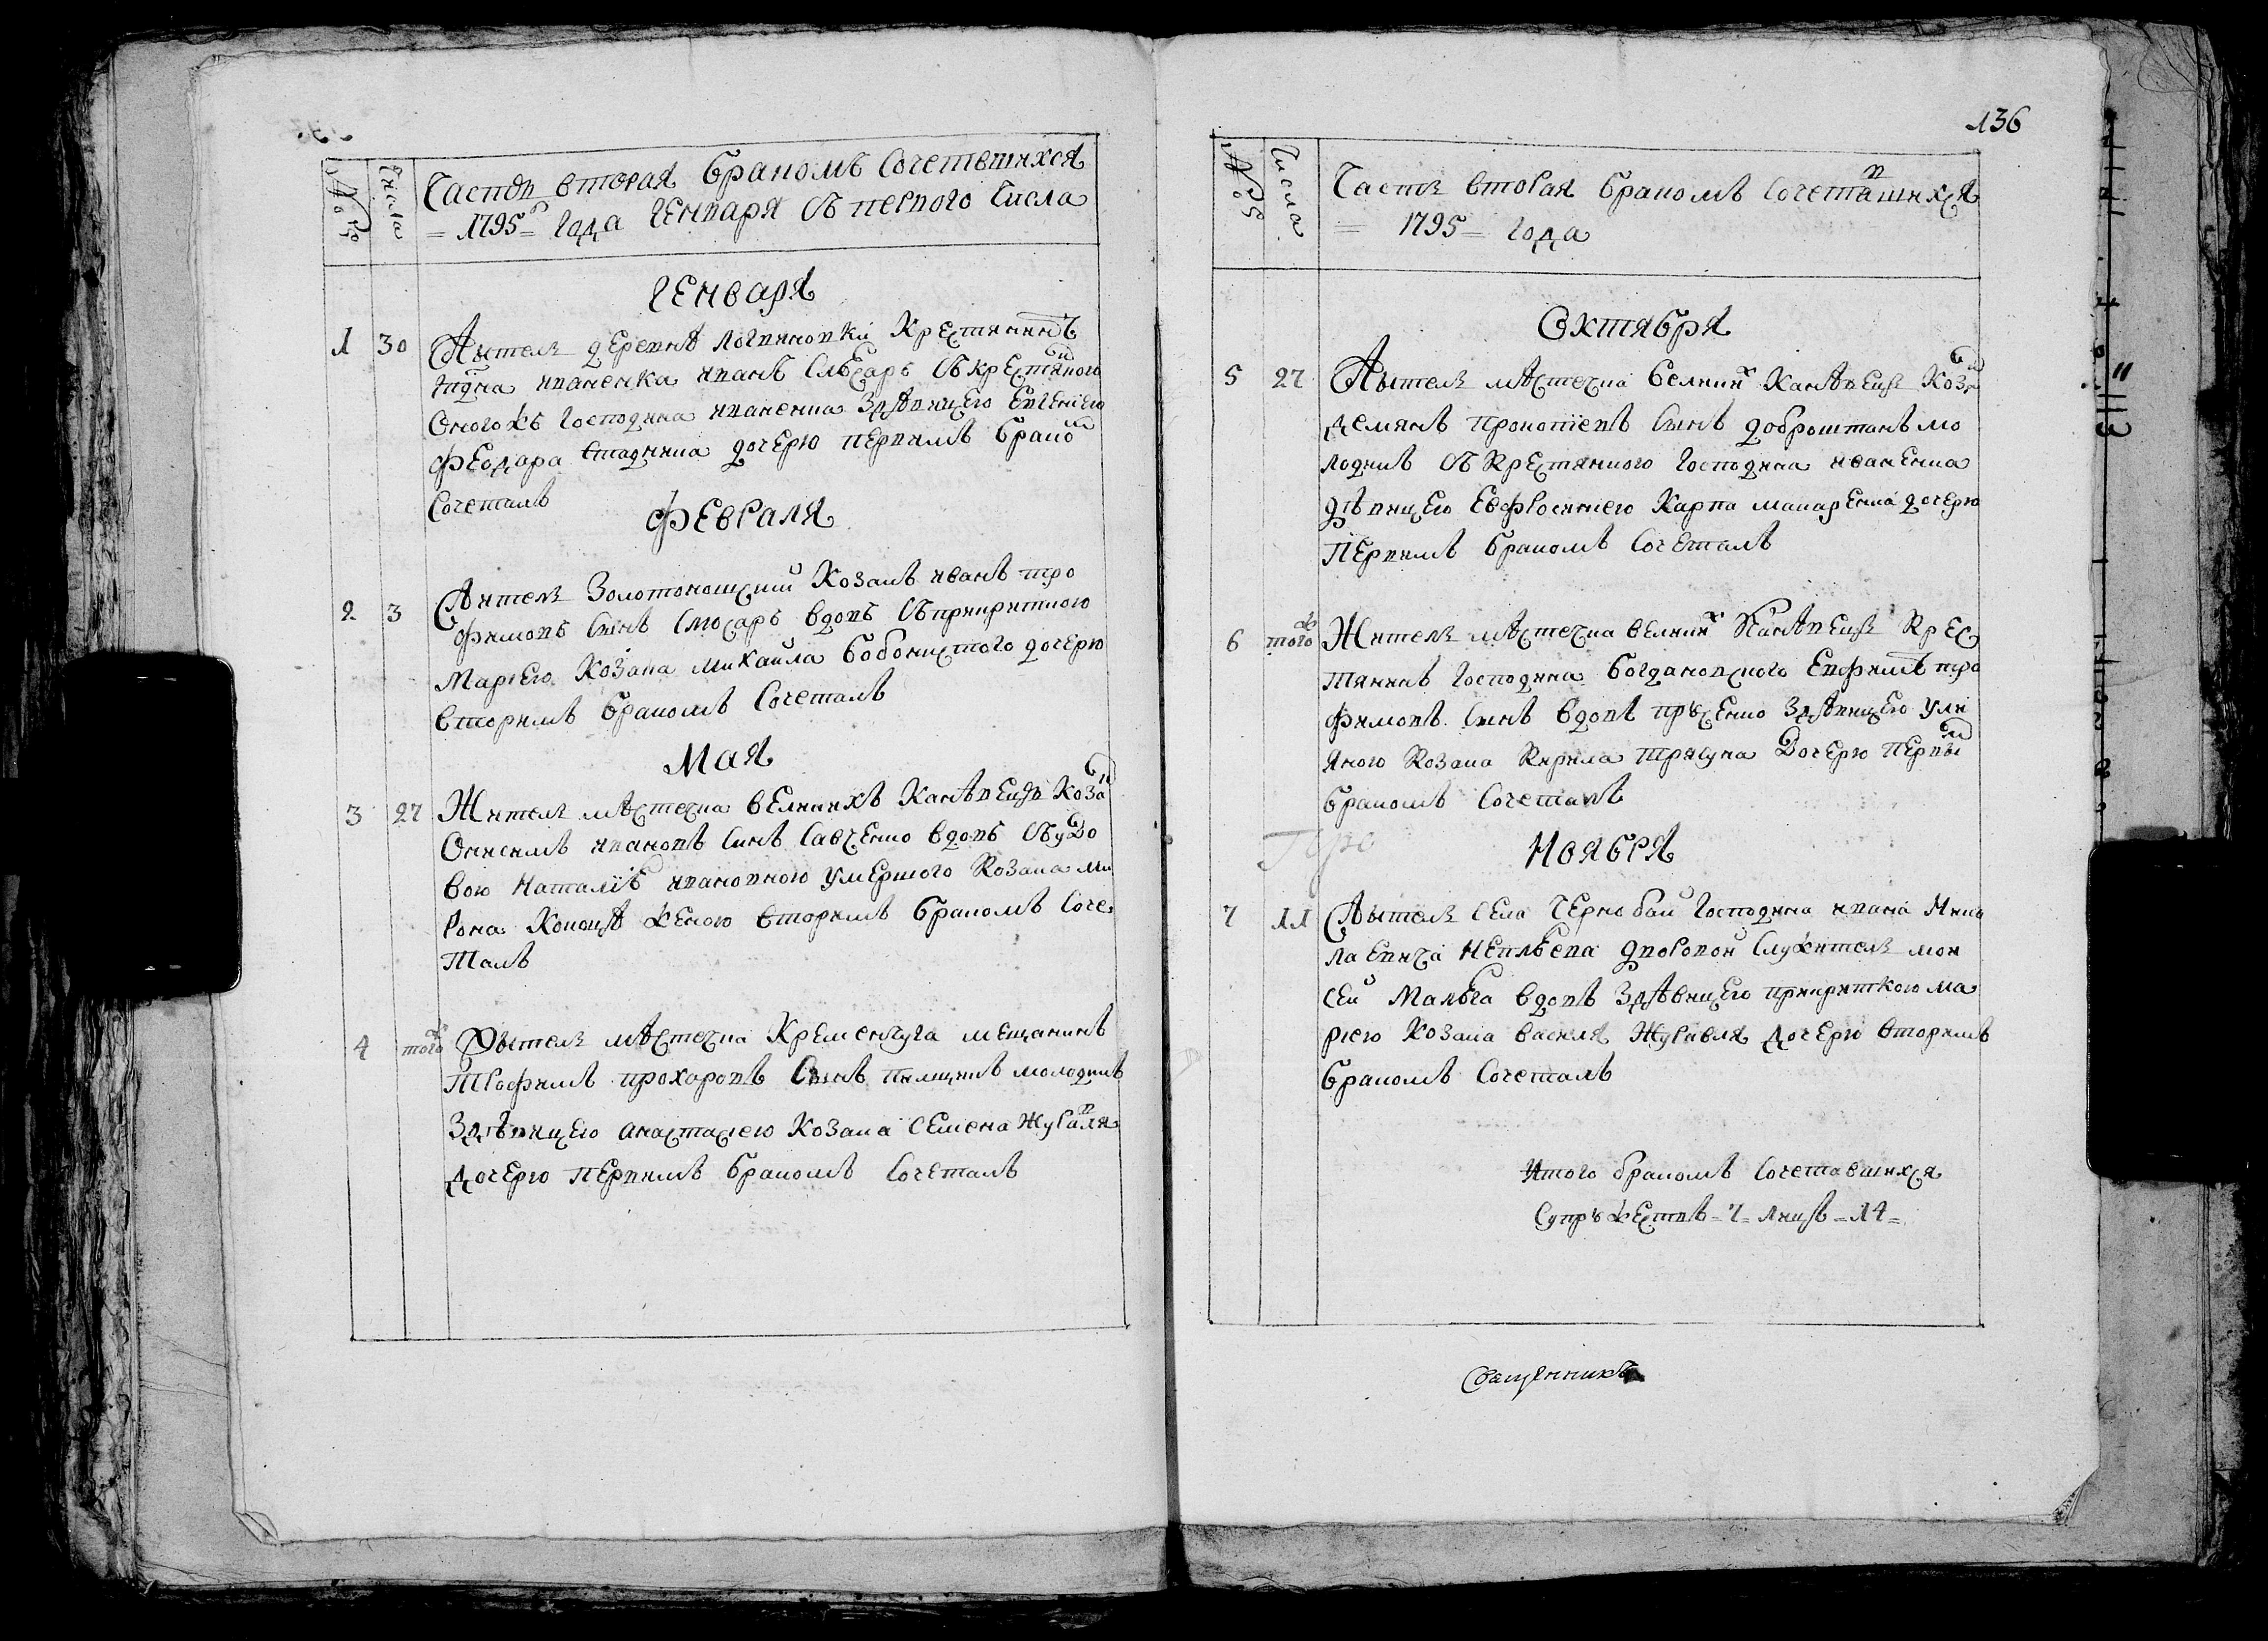 136
№ Числа Часть вторая бракомъ сочетвшихся
= 1795го= года генваря съ первого числа
Генваря
1 30 Житель деревнѣ крестянинъ
Гдна иваненка иванъ слѣсаръ съ крестяного
оногожъ господина иваненка здѣвицею евгениею
феодара дочерю первимъ бракомъ
сочеталъ
Февраля
2 3 Житель золотоношский козакъ иванъ тро
фимовъ синъ слюсаръ вдовъ съ
мариею козака михаила дочерю
вторимъ бракомъ сочеталъ
Мая
3 27 Житель мѣстечка великихъ канѣвецъ козакъ
онисимъ ивановъ синъ савченко вдовъ съ удо
вою наталиею ивановною умершого козака ми
рона женою вторимъ бракомъ соче
талъ
4 тогожъ Житель мѣстечка кременчуга мещанинъ
трофимъ прохоровъ синъ молодикъ
здѣвицею анастасиею козака семена журавля
дочерю первимъ бракомъ сочеталъ
№ Числа Часть вторая бракомъ сочетавшихся
= 1795= года
Октября
5 27 Житель мѣстечка великих канѣвецъ козакъ
демянъ прокопиевъ синъ доброштанъ мо
лодикъ съ крестянкою господина иваненка
дѣвицею евфросиниею карпа макаренка дочерю
первимъ бракомъ сочеталъ
6 тогожъ Житель мѣстечка великих канѣвецъ крес
тянинъ господина богдановского евфимъ тро
фимовъ синъ вдовъ здѣвицею ули
яною козака кирила трясуна дочерю первым
бракомъ сочеталъ
Ноября
7 11 Житель села чернобай господина ивана нико
лаевича неплѣева дворовой служитель мои
сей вдовъ здѣвицею ма
риею козака василя журавля дочерю вторимъ
бракомъ сочеталъ
Итого бракомъ сочетавшихся
супружествъ =7= лицъ =14=
Священникъ